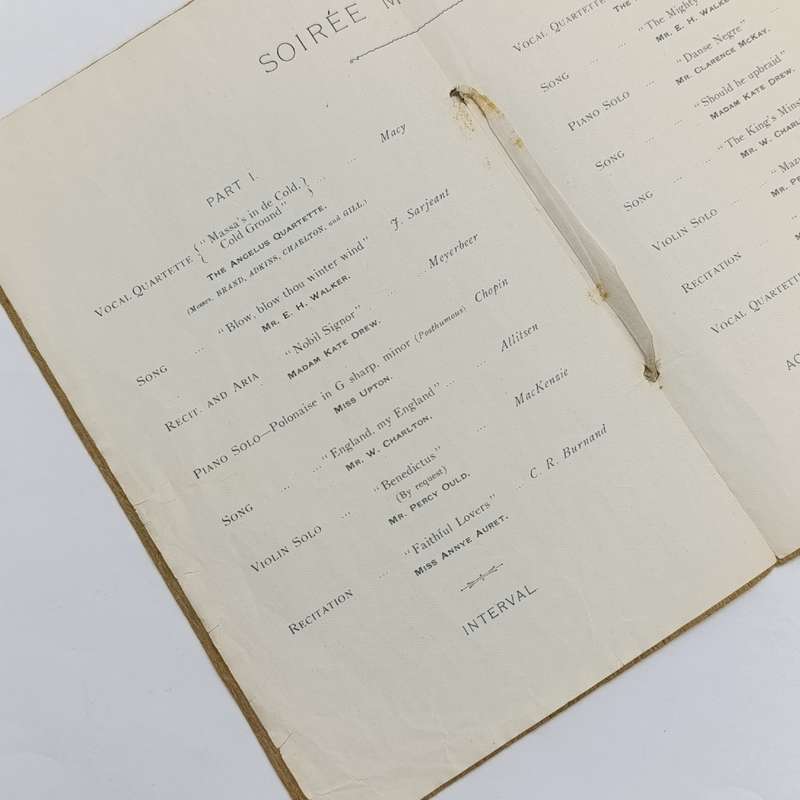 SOIRÉE M
PART I.
VOCAL QUARTETTE { "Massa's in de Cold, } ... ... Macy
{ Cold Ground" }
THE ANGELUS QUARTETTE.
(Messrs. BRAND, ADKINS, CHARLTON, and GILL.)
SONG ... "Blow, blow thou winter wind" J. Sarjeant
MR. E. H. WALKER.
RECIT. AND ARIA ... "Nobil Signor" ... ... Meyerbeer
MADAM KATE DREW.
PIANO SOLO—Polonaise in G sharp, minor (Posthumous) Chopin
MISS UPTON.
SONG ... ... "England, my England" ... ... Allitsen
MR. W. CHARLTON.
VIOLIN SOLO ... "Benedictus" ... MacKenzie
(By request)
MR. PERCY OULD.
RECITATION ... "Faithful Lovers" ... C. R. Burnand
MISS ANNYE AURET.
INTERVAL
VOCAL QUARTETTE
"The Mighty
SONG ... MR. E. H. WALKE
"Danse Negre"
PIANO SOLO ... MR. CLARENCE MCKAY.
"Should he upbraid"
SONG ... MADAM KATE DREW.
"The King's Mins
SONG ... MR. W. CHARL
"Maz
VIOLIN SOLO ... MR. PE
RECITATION ...
VOCAL QUARTETT